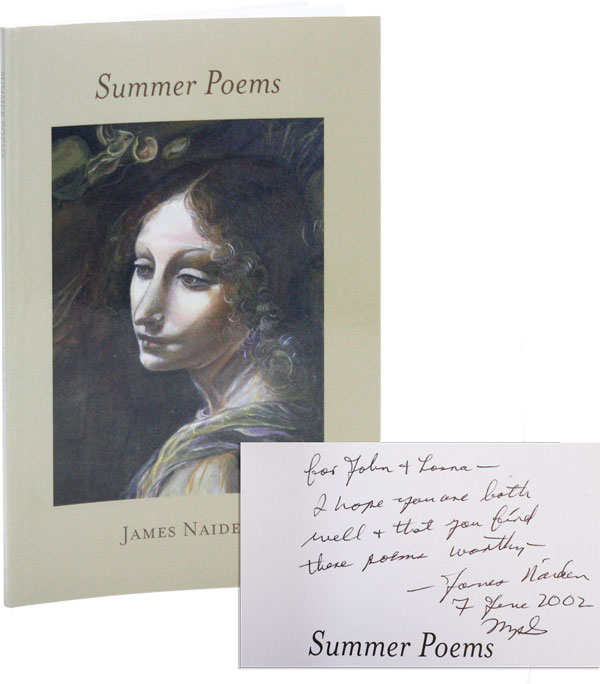 Summer Poems
JAMES NAIDE
for John & Lorna —
I hope you are both
well & that you find
these poems worthy —
— James Naiden
7 June 2002
Mpls
Summer Poems